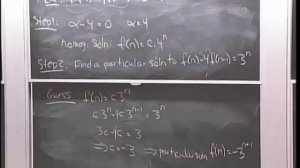 Step 1: α-4=0 α=4
homog. soln: f(n)=c₁4ⁿ
Step 2: Find a particular soln to f(n)-4f(n-1)=3ⁿ
Guess f(n)=c3ⁿ
c3ⁿ-4c3ⁿ⁻¹=3ⁿ
3c-4c=3
⇒c=-3 → particular soln f(n)=-3ⁿ⁺¹